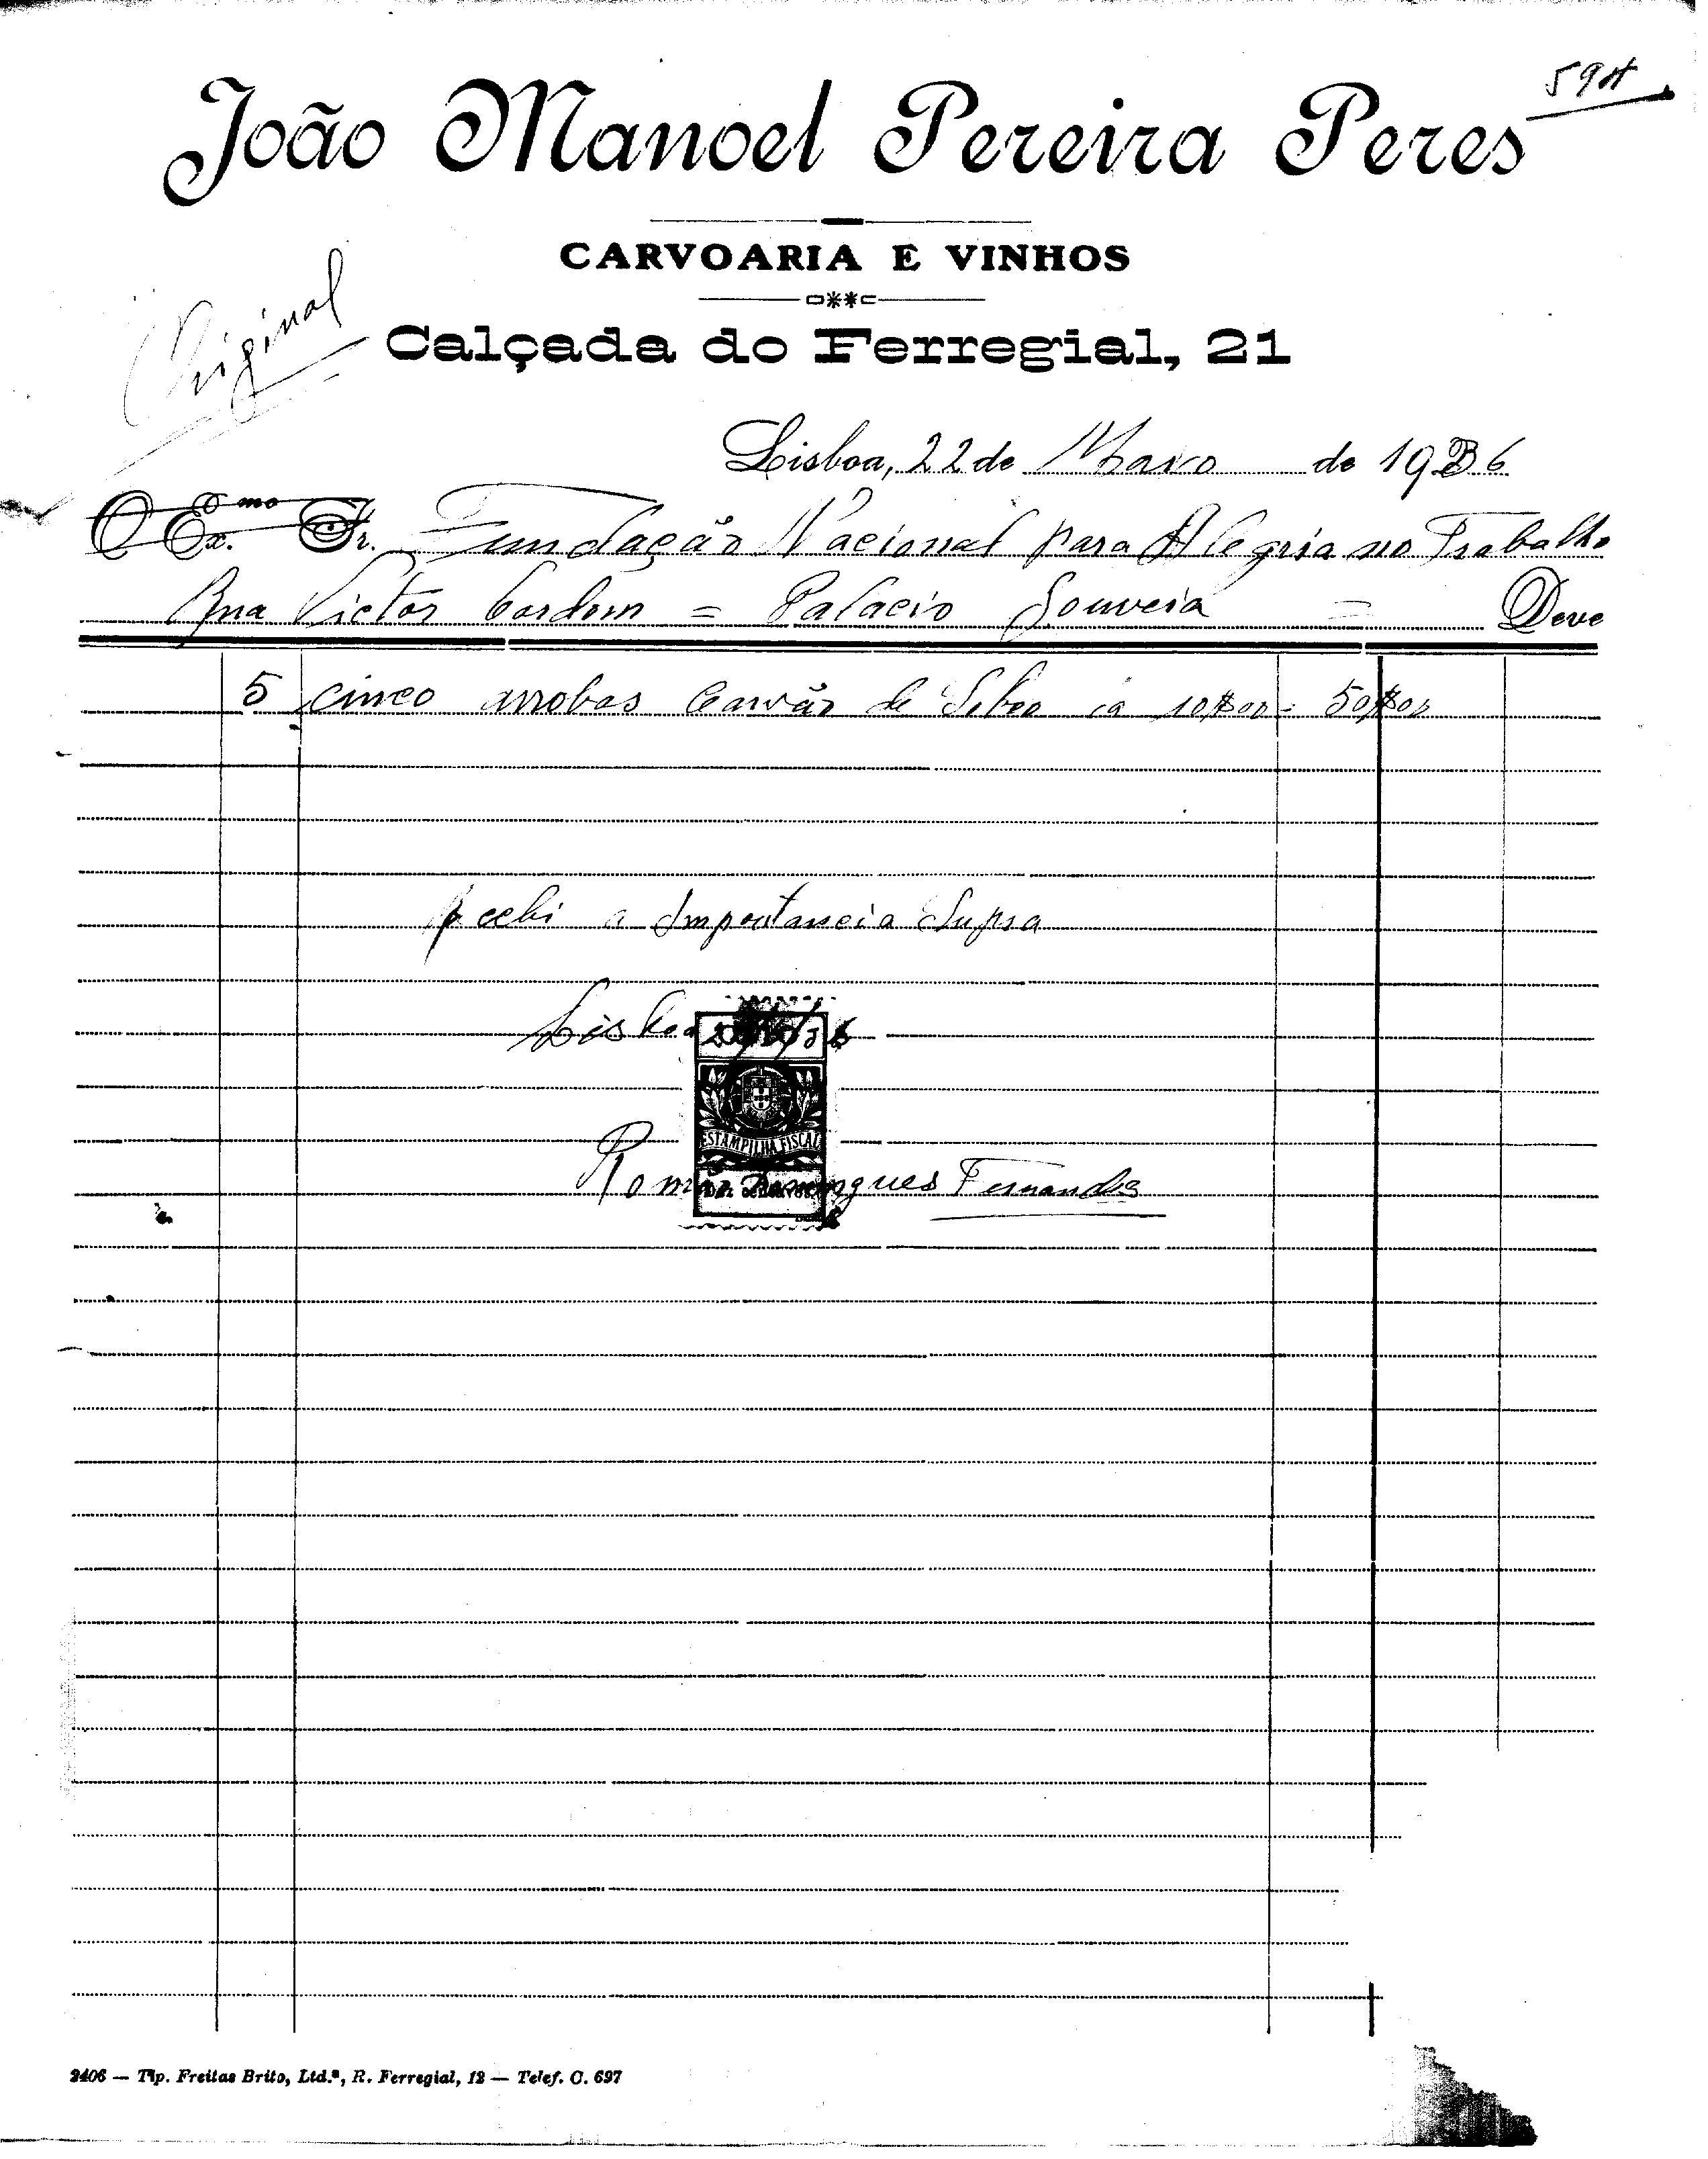 João Manoel Pereira Peres
CARVOARIA E VINHOS
Original
Calçada do Ferregial, 21
Lisboa, 22 de Março de 1936
O Ex.mo Sr. Fundação Nacional para Alegria no Trabalho
Rua Victor Cordom = Palacio Gouveia = Deve
5 cinco arrobas Carvão de Sobro a 10$00 = 50$00
Recebi a Importancia Supra
Lisboa
ESTAMPILHA FISCAL
Romão Domingues Fernandes
2406 — Tip. Freitas Brito, Ltd.ª, R. Ferregial, 12 — Telef. C. 697